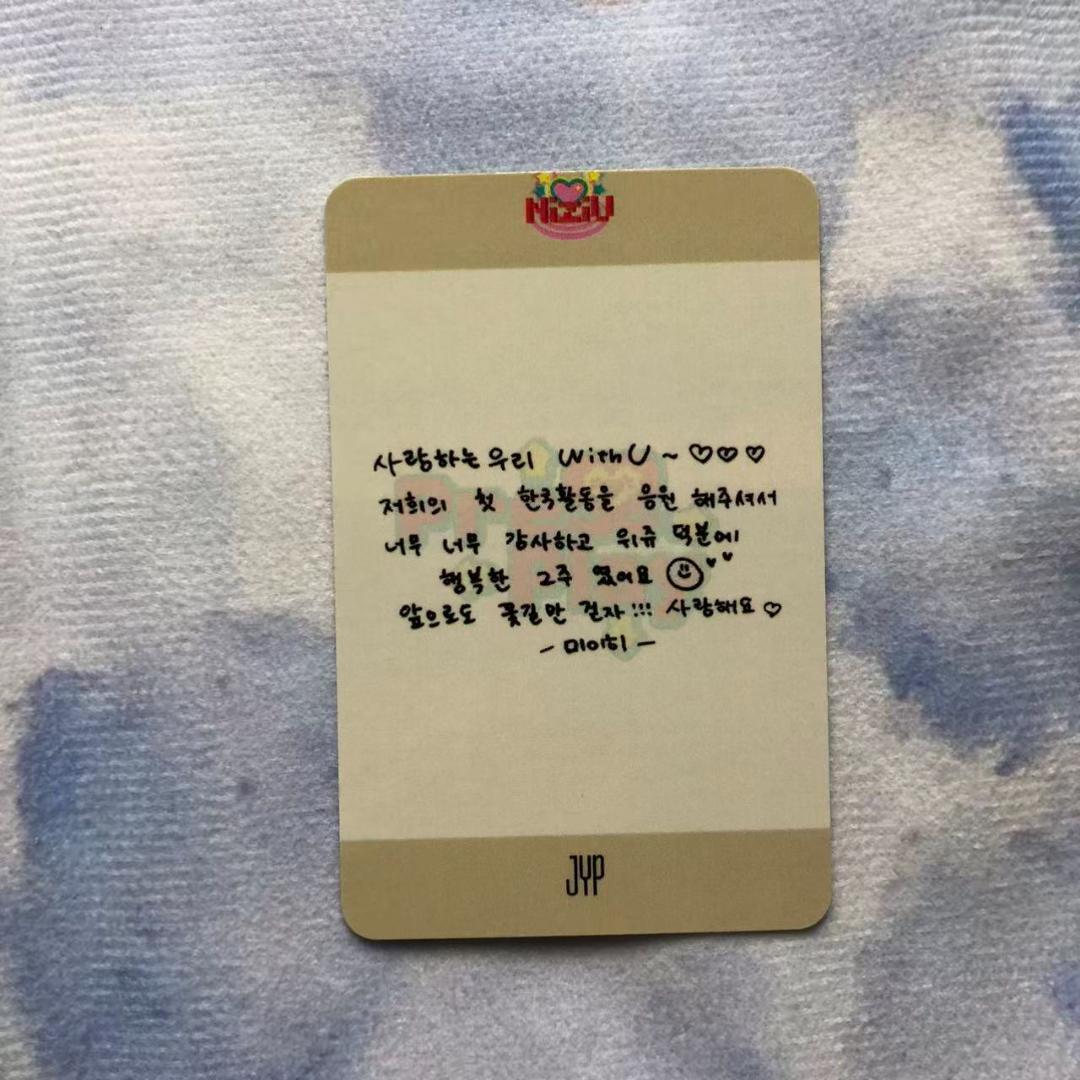 NiziU
사랑하는 우리 WithU ~ ♡♡♡
저희의 첫 한국활동을 응원 해주셔서
너무 너무 감사하고 위쥬 덕분에
행복한 2주 였어요 ☺♥♥
앞으로도 꽃길만 걷자!!! 사랑해요♡
- 미이히 -
Press Play
JYP